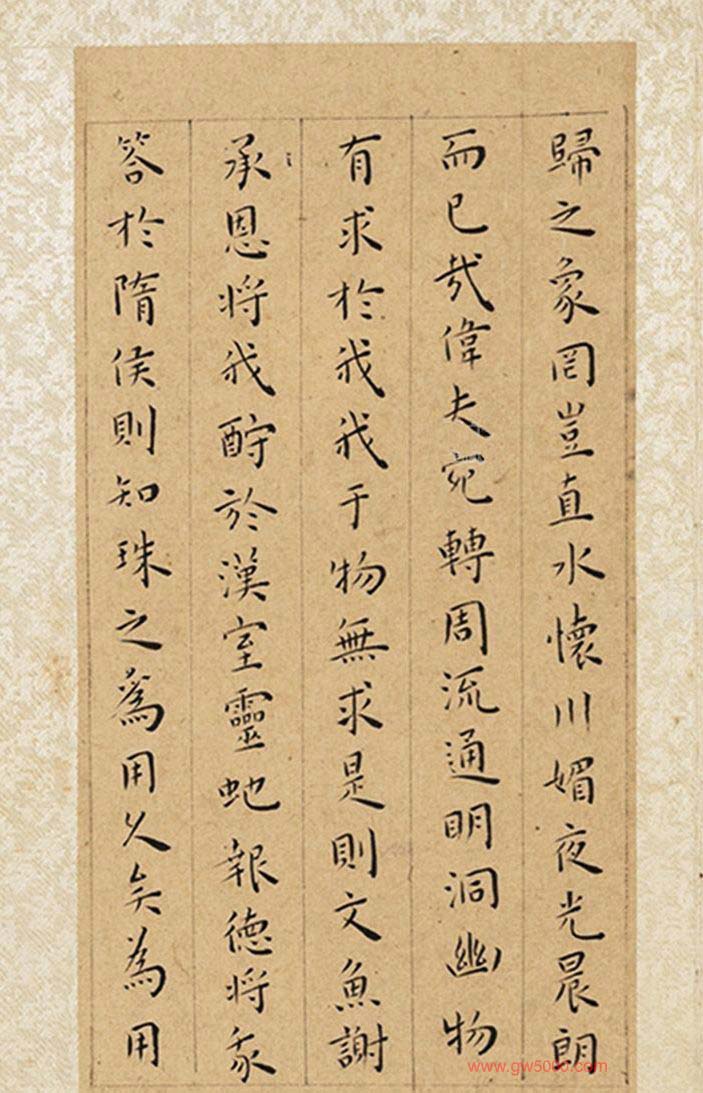 歸之象罔豈直水懷川媚夜光晨朗
而已哉偉夫宛轉周流通明洞幽物
有求於我我于物無求是則文魚謝
承恩將我酧於漢室靈虵報德將我
答於隋侯則知珠之為用久矣為用
www.gw5000.com